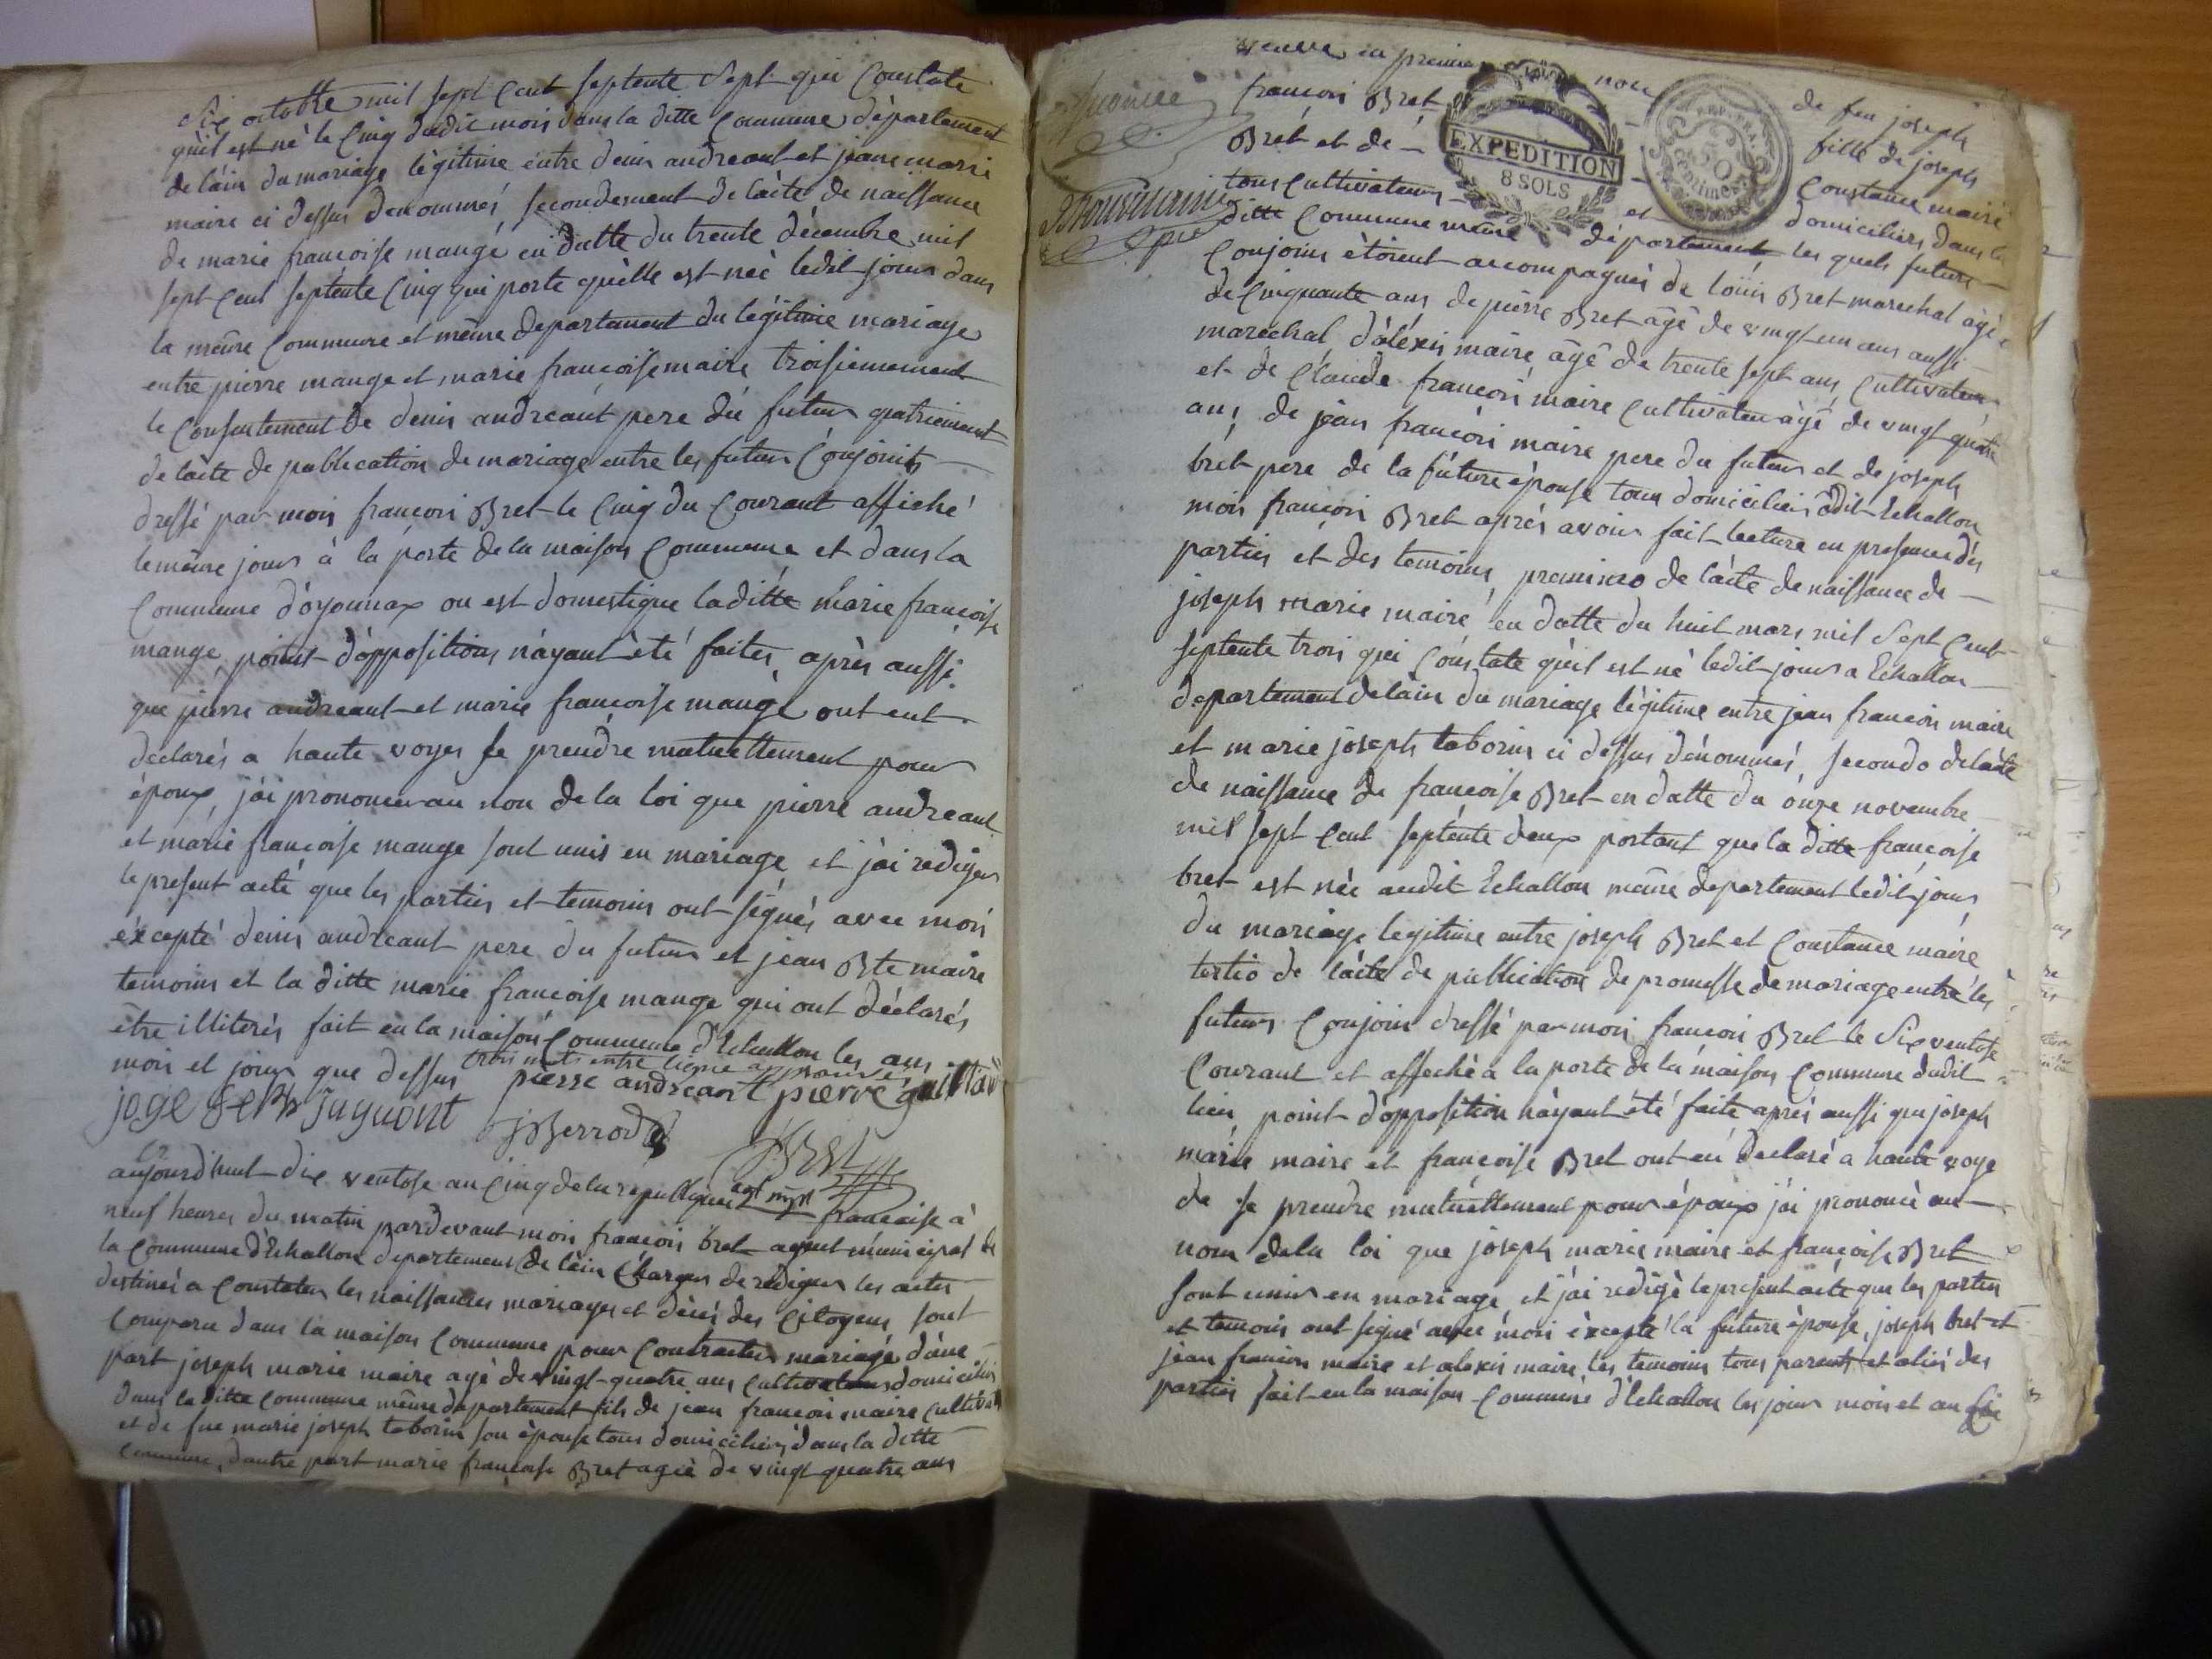 Six octobre mil sept cent septente sept qui constate
qu'il est né le cinq dudit mois dans la ditte commune département
de l'ain du mariage légitime entre denis andreant et jeane marie
maire ci dessus denommés, secondement de l'acte de naissance
de marie francoise mange en datte du trente décembre mil
sept cent septente cinq qui porte quèlle est neè ledit jour dans
la même commune et même departement du légitime mariage
entre pierre mange et marie francoise maire troisiemement
le consentement de denis andreant pere du futur quatriement
de lacte de publication de mariage entre les futurs conjoints
dressé par mois francois Bret le cinq du courant affiché
le même jour à la porte de la maison commune et dans la
commune d'oyonnax ou est domestique laditte marie francoise
mange, point d'oppositions n'ayant été faites, après aussi
que pierre andreant et marie francoise mange ont eut
declarés a haute voyes se prendre mutuellement pour
époux, j'ai prononcer au nom de la loi que pierre andreant
et marie francoise mange sont unis en mariage et j'ai rediger
le present acte que les parties et temoins ont signés avec mois
éxcepté denis andreant pere du futur et jean Bte maire
temoins et la ditte marie francoise mange qui ont déclarés
être illiterès fait en la maison commune d'Echallon les ans
mois et jours que dessus trois mots entre ligne approuvé
pierre andreant pierre gaillard
joge juguont JBerrod
BRet agt mpl
aujourd'huit dix ventose an cinq de la republique francaise à
neuf heures du matin pardevant mois francois bret agent municipal de
la commune d'Echallon departement de l'ain charger de rediger les actes
destinés a constater les naissances mariages et décès des citoyens sont
comparu dans la maison commune pour contracter mariage d'une
part joseph marie maire agé de vingt-quatre ans cultivateur domiciliés
dans la ditte commune même departement fils de jean francois maire cultivat
et de fue marie joseph taborin son épouse tous domiciliers dans la ditte
commune, d'autre part marie francoise Bret ageè de vingt quatre ans
veuve en premier noce de feu joseph
francois Bret fille de joseph
Bret et de constance maire
tous cultivateurs et domiciliers dans la
ditte commune même département les quels futurs
conjoins étoient accompagnés de loüis Bret marechal àgé
de cinquante ans de pierre Bret âgé de vingt un ans aussi
marechal d'aléxis maire âgé de trente sept ans cultivateur
et de claude francois maire cultivateur âgé de vingt quatre
ans, de jean francois maire pere du futur et de joseph
bret pere de la future épouse tous domiciliers audit Echallon
mois francois Bret après avoir fait lecture en presence des
parties et des temoins, premiero de l'acte de naissance de
joseph marie maire en datte du huit mars mil sept cent
septente trois qui constate qu'il est né ledit jour a Echallon
departement de l'ain du mariage légitime entre jean francois maire
et marie joseph taborin ci dessus dénommés, secondo de lacte
de naissance de francoise Bret en datte du onze novembre
mil sept cent septente deux portant que la ditte francoise
bret est née audit Echallon même departement ledit jour
du mariage legitime entre joseph Bret et constance maire
tertio de l'acte de publication de promesse de mariage entre les
futurs conjoins dressé par mois francois Bret le six ventose
courant et affiché a la porte de la maison commune dudit
lieu point d'opposition n'ayant été faite aprés aussi que joseph
marie maire et francoise Bret ont eu declaré a haute voye
de se prendre mutuellement pour époux j'ai prononcé au
nom de la loi que joseph marie maire et francoise Bret
sont unis en mariage et j'ai redigé le present acte que les parties
et temoins ont signé avec mois excepté la future épouse, joseph bret et
jean francois maire et alexis maire les temoins tous parents et aliés des
parties fait en la maison commune d'Echallon les jour mois et an
EXPEDITION
8 SOLS
REP. FRA.
50
centimes